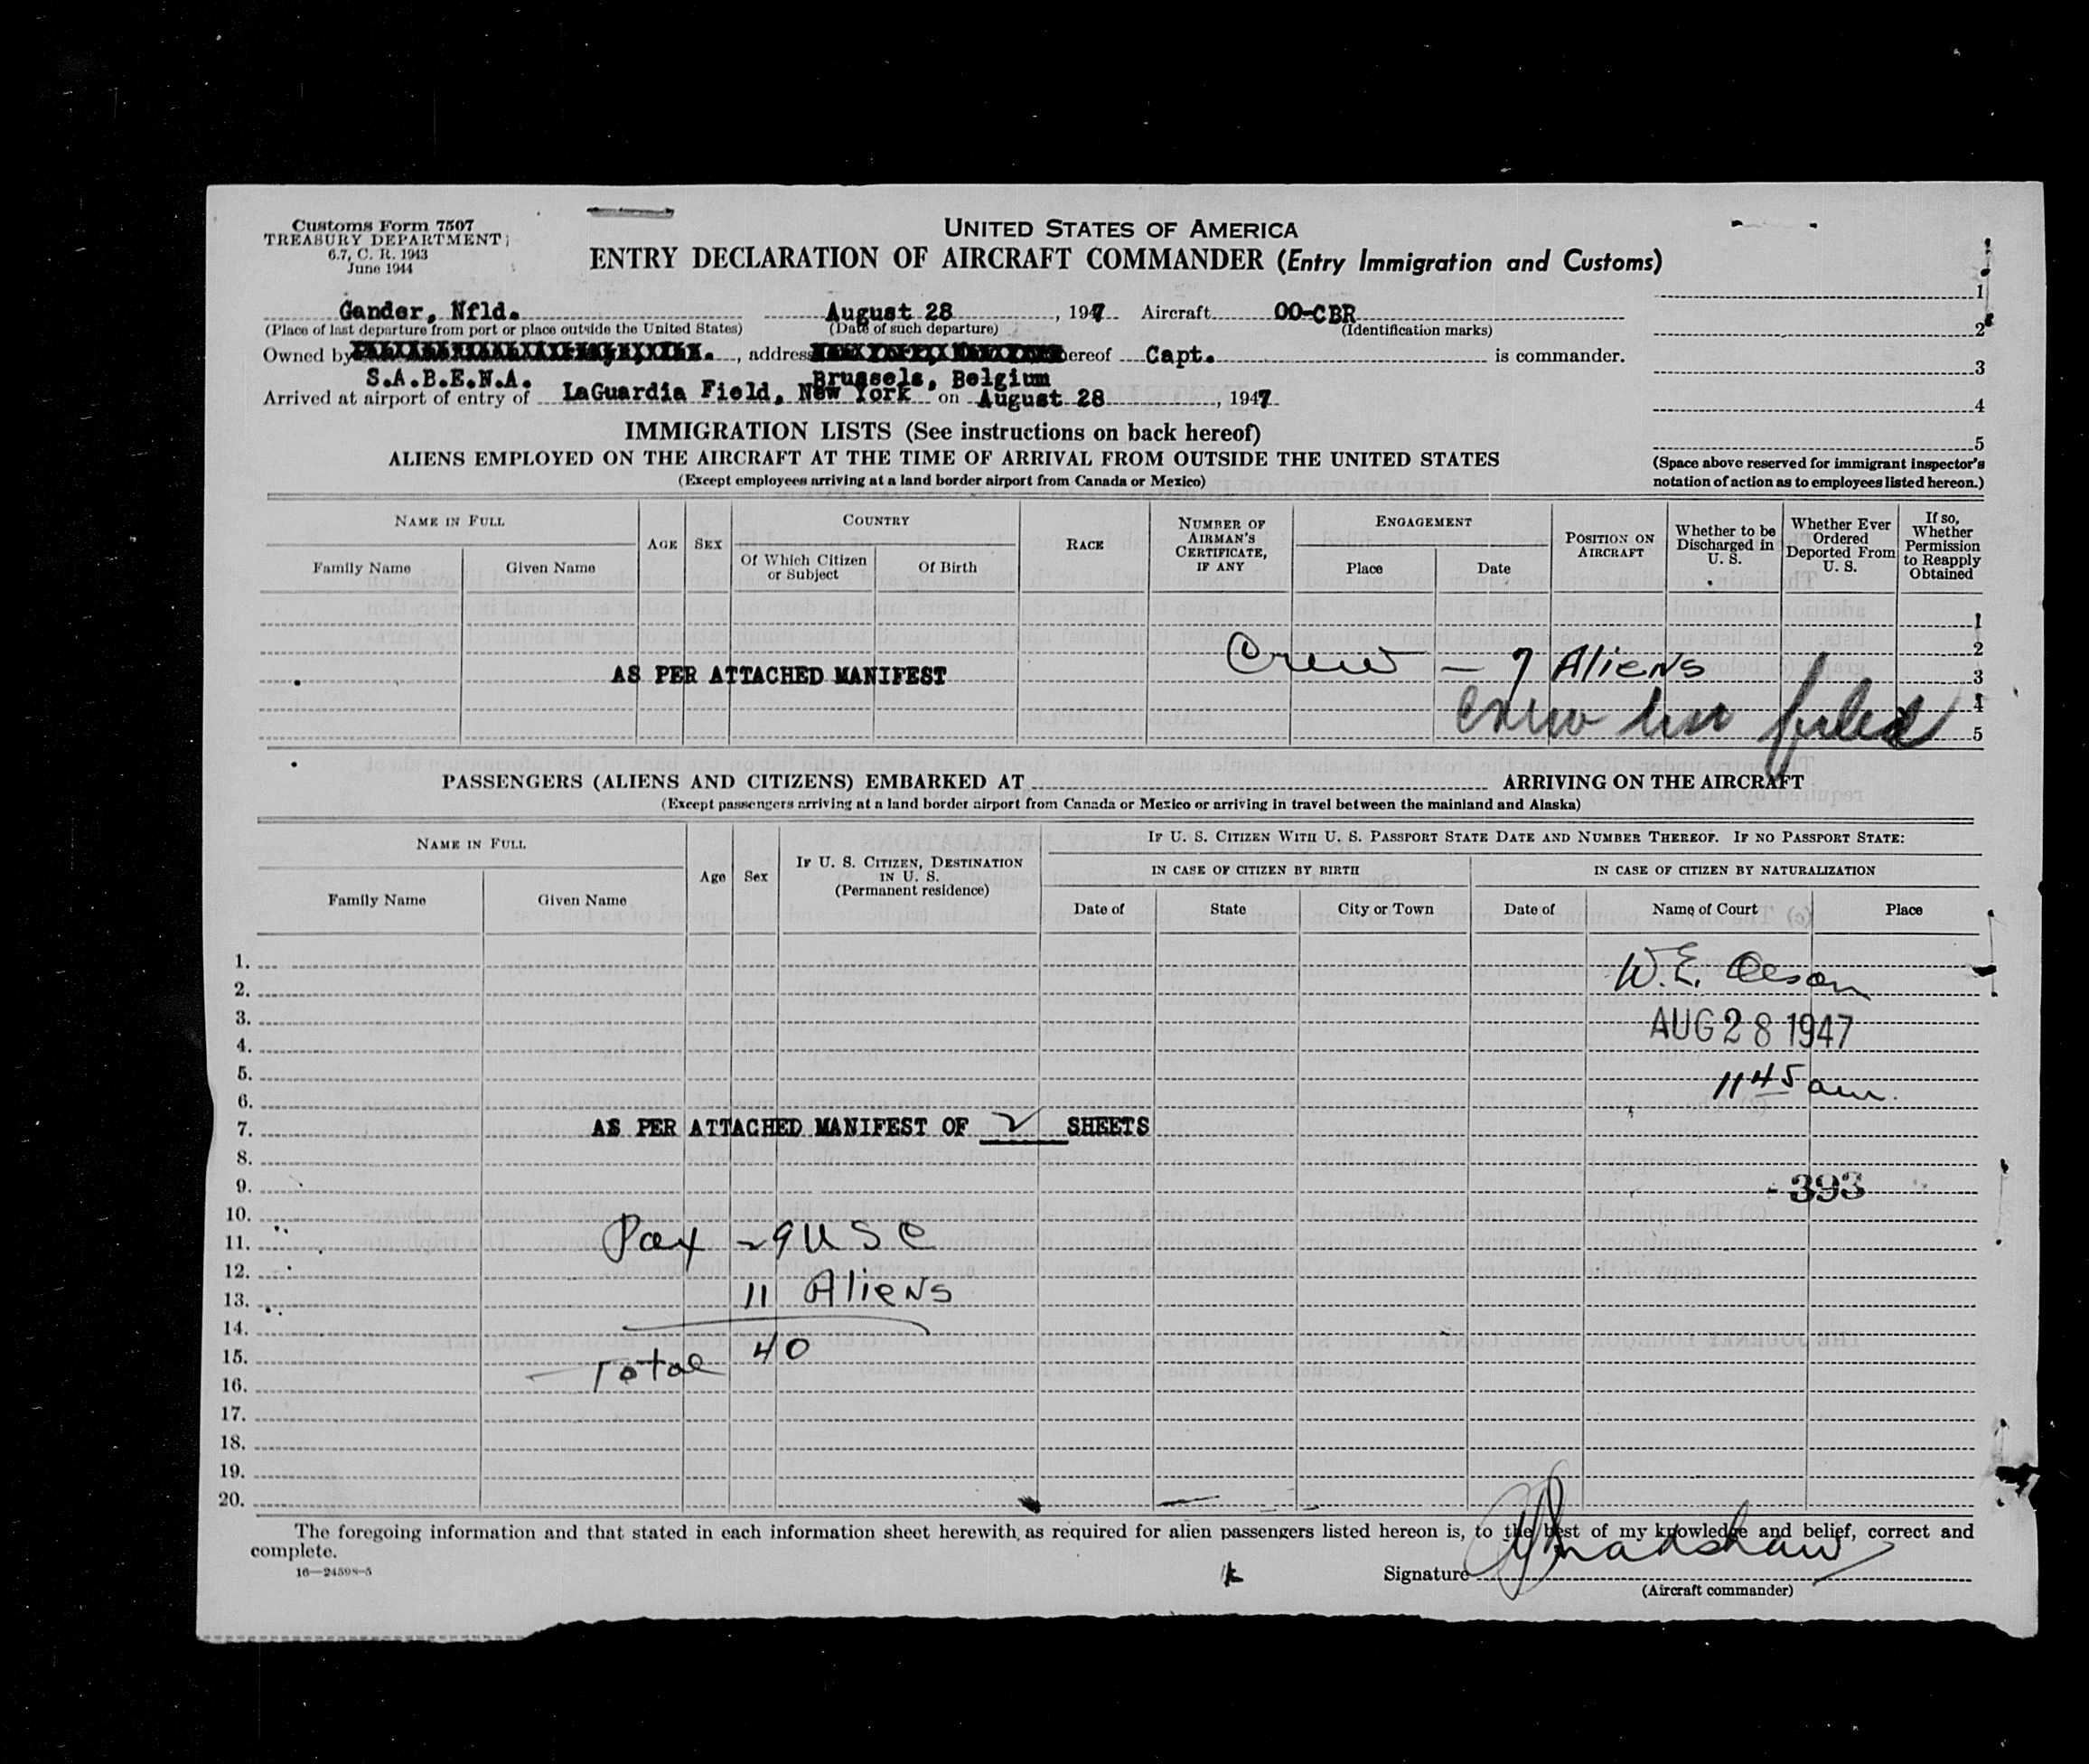 Customs Form 7507
TREASURY DEPARTMENT
6.7, C. R. 1943
June 1944
UNITED STATES OF AMERICA
ENTRY DECLARATION OF AIRCRAFT COMMANDER (Entry Immigration and Customs)
Gander, Nfld. August 28, 1947 Aircraft OO-CBR
(Place of last departure from port or place outside the United States) (Date of such departure) (Identification marks)
Owned by , address hereof Capt. is commander.
S.A.B.E.N.A. Brussels, Belgium
Arrived at airport of entry of LaGuardia Field, New York on August 28, 1947
1
2
3
4
5
(Space above reserved for immigrant inspector's
notation of action as to employees listed hereon.)
IMMIGRATION LISTS (See instructions on back hereof)
ALIENS EMPLOYED ON THE AIRCRAFT AT THE TIME OF ARRIVAL FROM OUTSIDE THE UNITED STATES
(Except employees arriving at a land border airport from Canada or Mexico)
NAME IN FULL
Family Name
Given Name
AGE
SEX
COUNTRY
Of Which Citizen or Subject
Of Birth
RACE
NUMBER OF AIRMAN'S CERTIFICATE, IF ANY
ENGAGEMENT
Place
Date
POSITION ON AIRCRAFT
Whether to be Discharged in U. S.
Whether Ever Ordered Deported From U. S.
If so, Whether Permission to Reapply Obtained
1
2
3
4
5
AS PER ATTACHED MANIFEST
Crew - 7 Aliens
Crew list filed
PASSENGERS (ALIENS AND CITIZENS) EMBARKED AT ARRIVING ON THE AIRCRAFT
(Except passengers arriving at a land border airport from Canada or Mexico or arriving in travel between the mainland and Alaska)
NAME IN FULL
Family Name
Given Name
Age
Sex
IF U. S. CITIZEN, DESTINATION IN U. S.
(Permanent residence)
IF U. S. CITIZEN WITH U. S. PASSPORT STATE DATE AND NUMBER THEREOF. IF NO PASSPORT STATE:
IN CASE OF CITIZEN BY BIRTH
IN CASE OF CITIZEN BY NATURALIZATION
Date of
State
City or Town
Date of
Name of Court
Place
1.
2.
3.
4.
5.
6.
7.
8.
9.
10.
11.
12.
13.
14.
15.
16.
17.
18.
19.
20.
W.E. Olson
AUG 28 1947
11 45 am.
AS PER ATTACHED MANIFEST OF 2 SHEETS
393
Pax 29 USC
11 Aliens
Total 40
The foregoing information and that stated in each information sheet herewith, as required for alien passengers listed hereon is, to the best of my knowledge and belief, correct and
complete.
16—24598-5
Signature
(Aircraft commander)